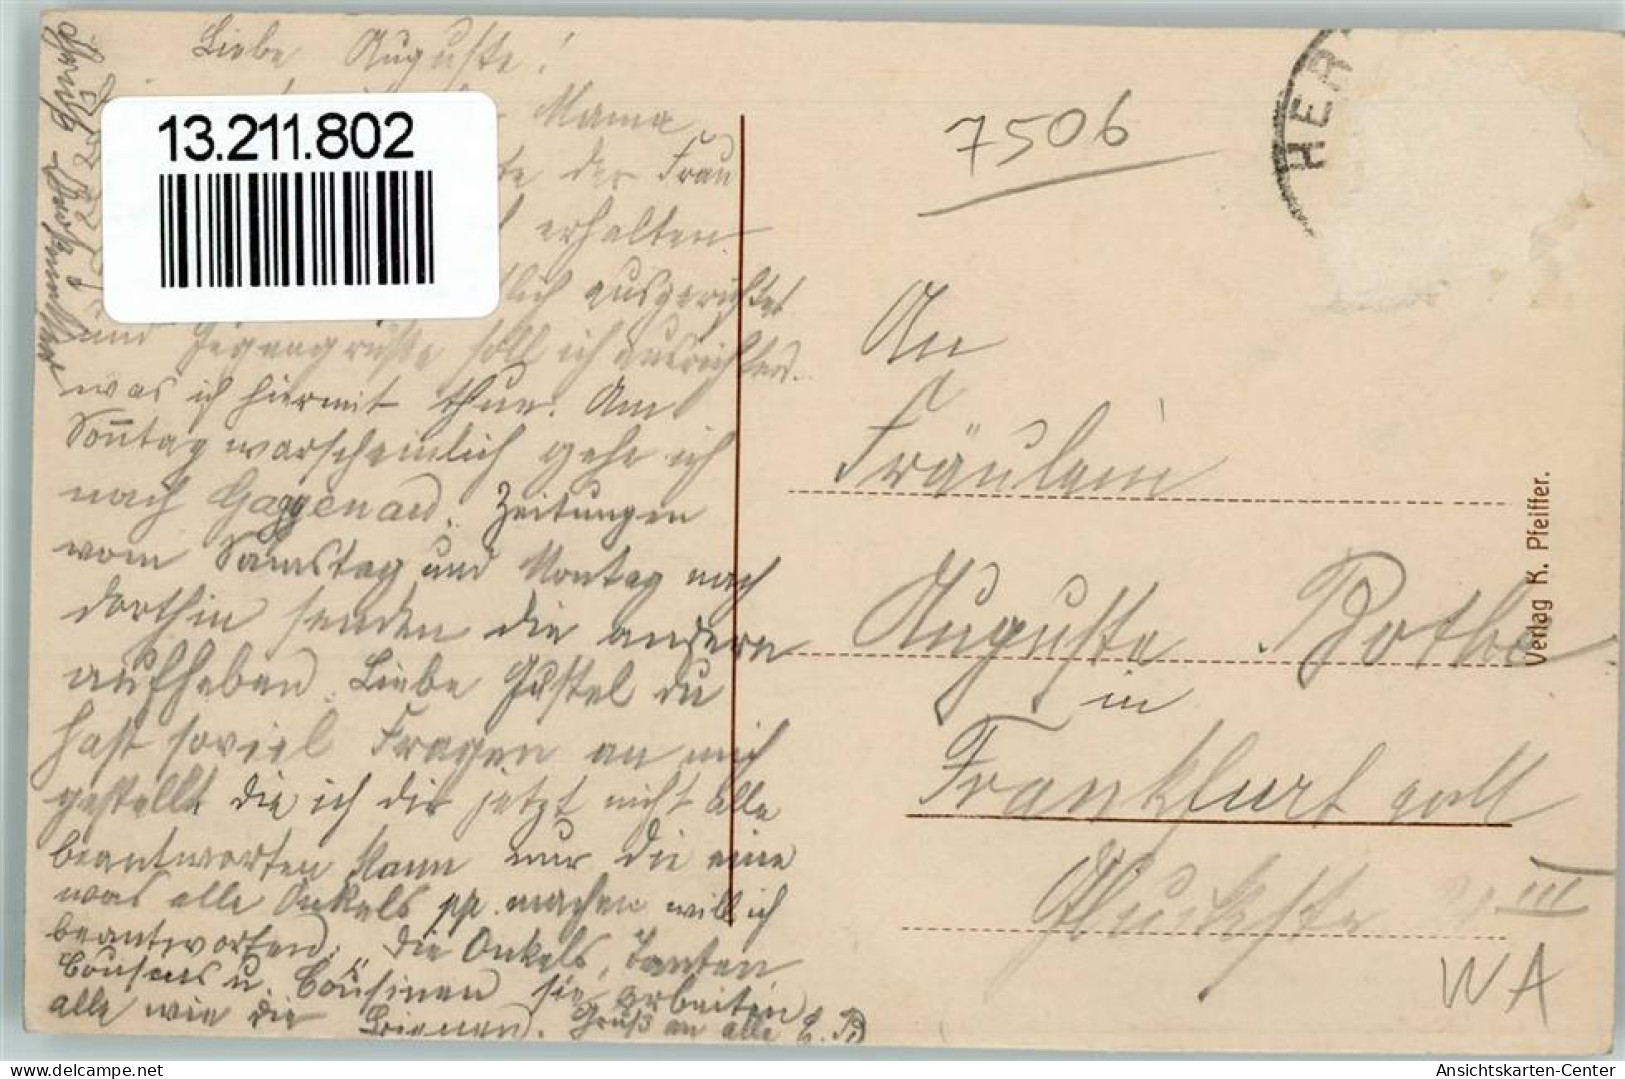 Liebe Auguste!
Mama
der Frau
erhalten
ausgerichtet
und Gegengrüße soll ich ausrichten.
was ich hiermit thue. Am
Sonntag warscheinlich gehe ich
nach Gaggenau. Zeitungen
vom Samstag und Montag nach
dorthin senden die andern
aufheben. Liebe Gustel du
hast soviel Fragen an mich
gestellt die ich dir jetzt nicht alle
beantworten kann nur die eine
was alle Onkels pp. machen will ich
beantworten. Die Onkels, Tanten
Cousens u. Cousinen sie arbeiten
alle wie die Bienen. Gruß an alle E. B
13.211.802
7506
HER
An
Fräulein
Auguste Bothe
in
Frankfurt
III
WA
Verlag K. Pfeiffer.
oldthing.de
Ansichtskarten-Center